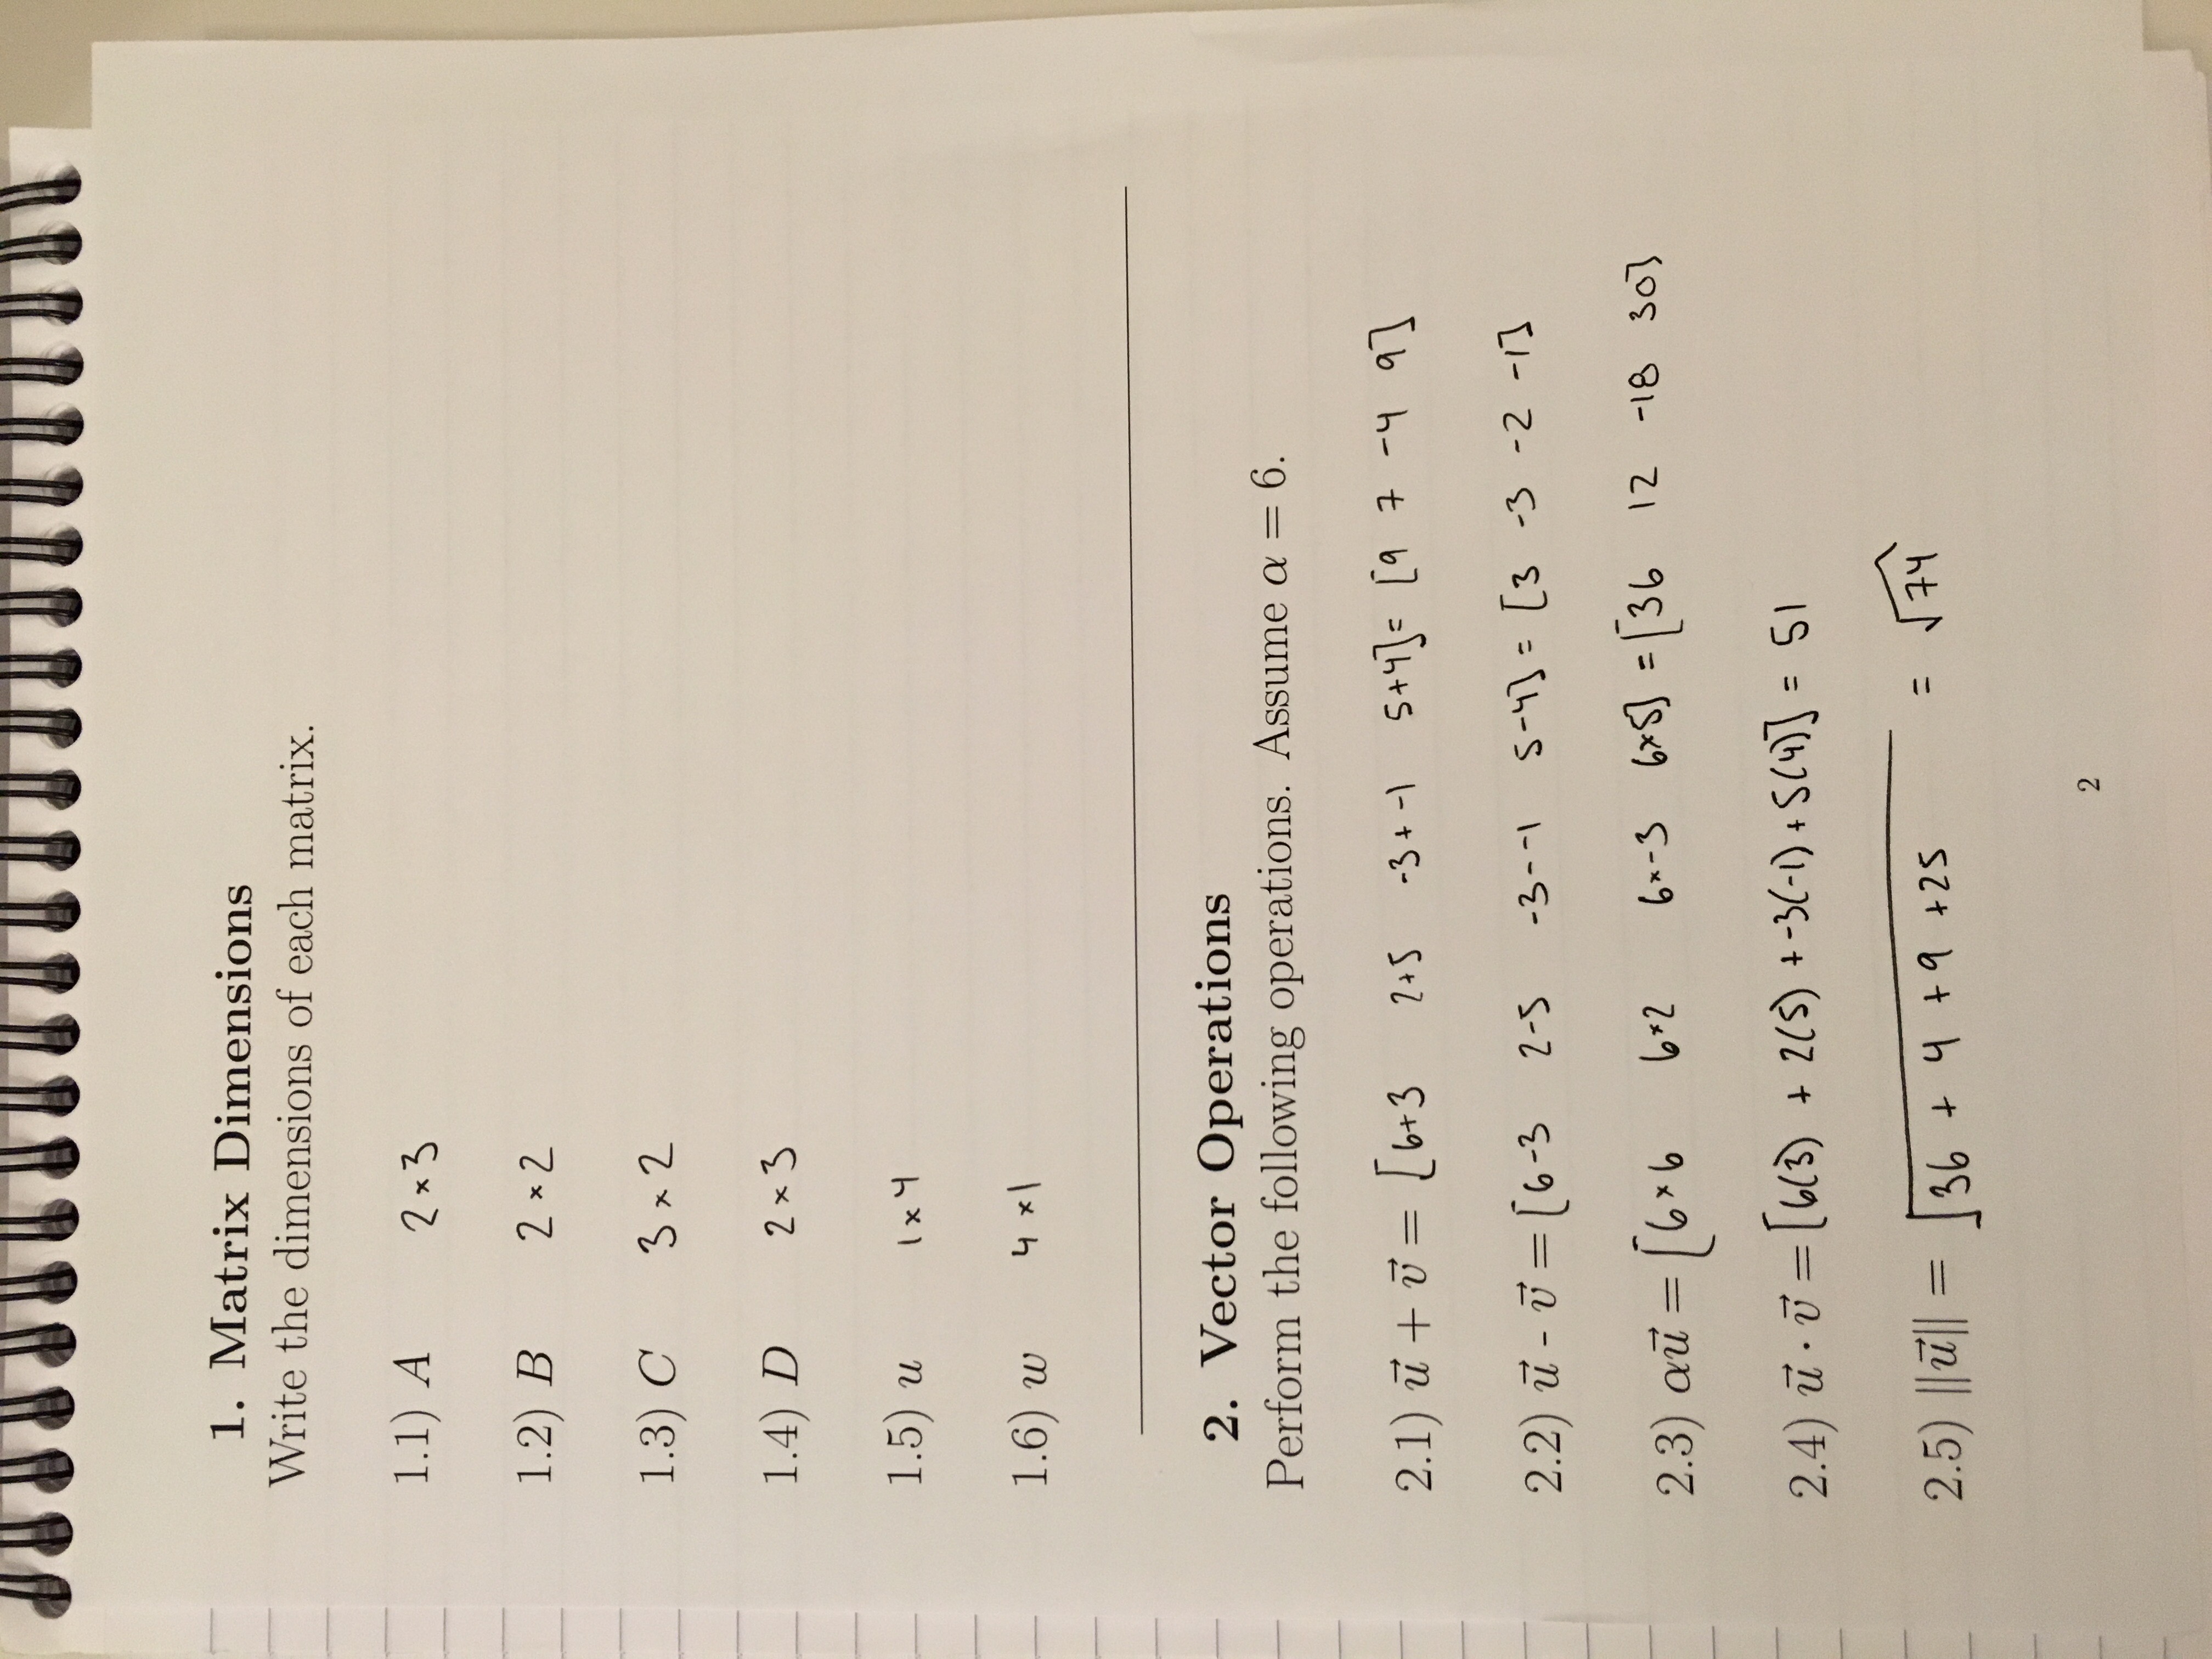 1. Matrix Dimensions
Write the dimensions of each matrix.
1.1) A 2 × 3
1.2) B 2 × 2
1.3) C 3 × 2
1.4) D 2 × 3
1.5) u 1 × 4
1.6) w 4 × 1
2. Vector Operations
Perform the following operations. Assume α = 6.
2.1) u⃗ + v⃗ = [6+3 2+5 -3+-1 5+4] = [9 7 -4 9]
2.2) u⃗ - v⃗ = [6-3 2-5 -3--1 5-4] = [3 -3 -2 -1]
2.3) αu⃗ = [6×6 6×2 6×-3 6×5] = [36 12 -18 30]
2.4) u⃗ · v⃗ = [6(3) + 2(5) + -3(-1) + 5(4)] = 51
2.5) ||u⃗|| = √36 + 4 + 9 + 25 = √74
2